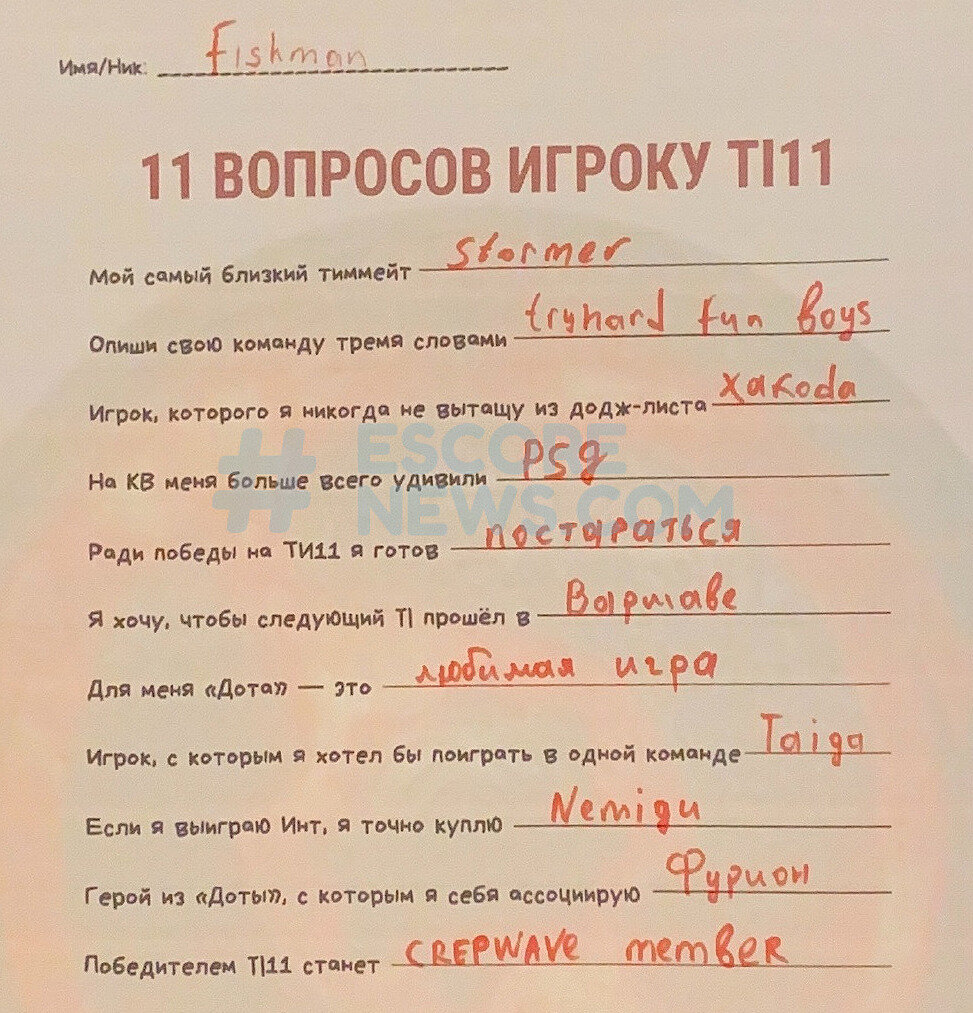 Имя/Ник: fishman
11 ВОПРОСОВ ИГРОКУ TI11
Мой самый близкий тиммейт Stormer
Опиши свою команду тремя словами tryhard fun boys
Игрок, которого я никогда не вытащу из додж-листа Xakoda
# ESCORE
NEWS.COM
На КВ меня больше всего удивили PSg
Ради победы на ТИ11 я готов постараться
Я хочу, чтобы следующий TI прошёл в Варшаве
Для меня «Дота» — это любимая игра
Игрок, с которым я хотел бы поиграть в одной команде Taiga
Если я выиграю Инт, я точно куплю Nemigu
Герой из «Доты», с которым я себя ассоциирую Фурион
Победителем TI11 станет CREPWAVE member